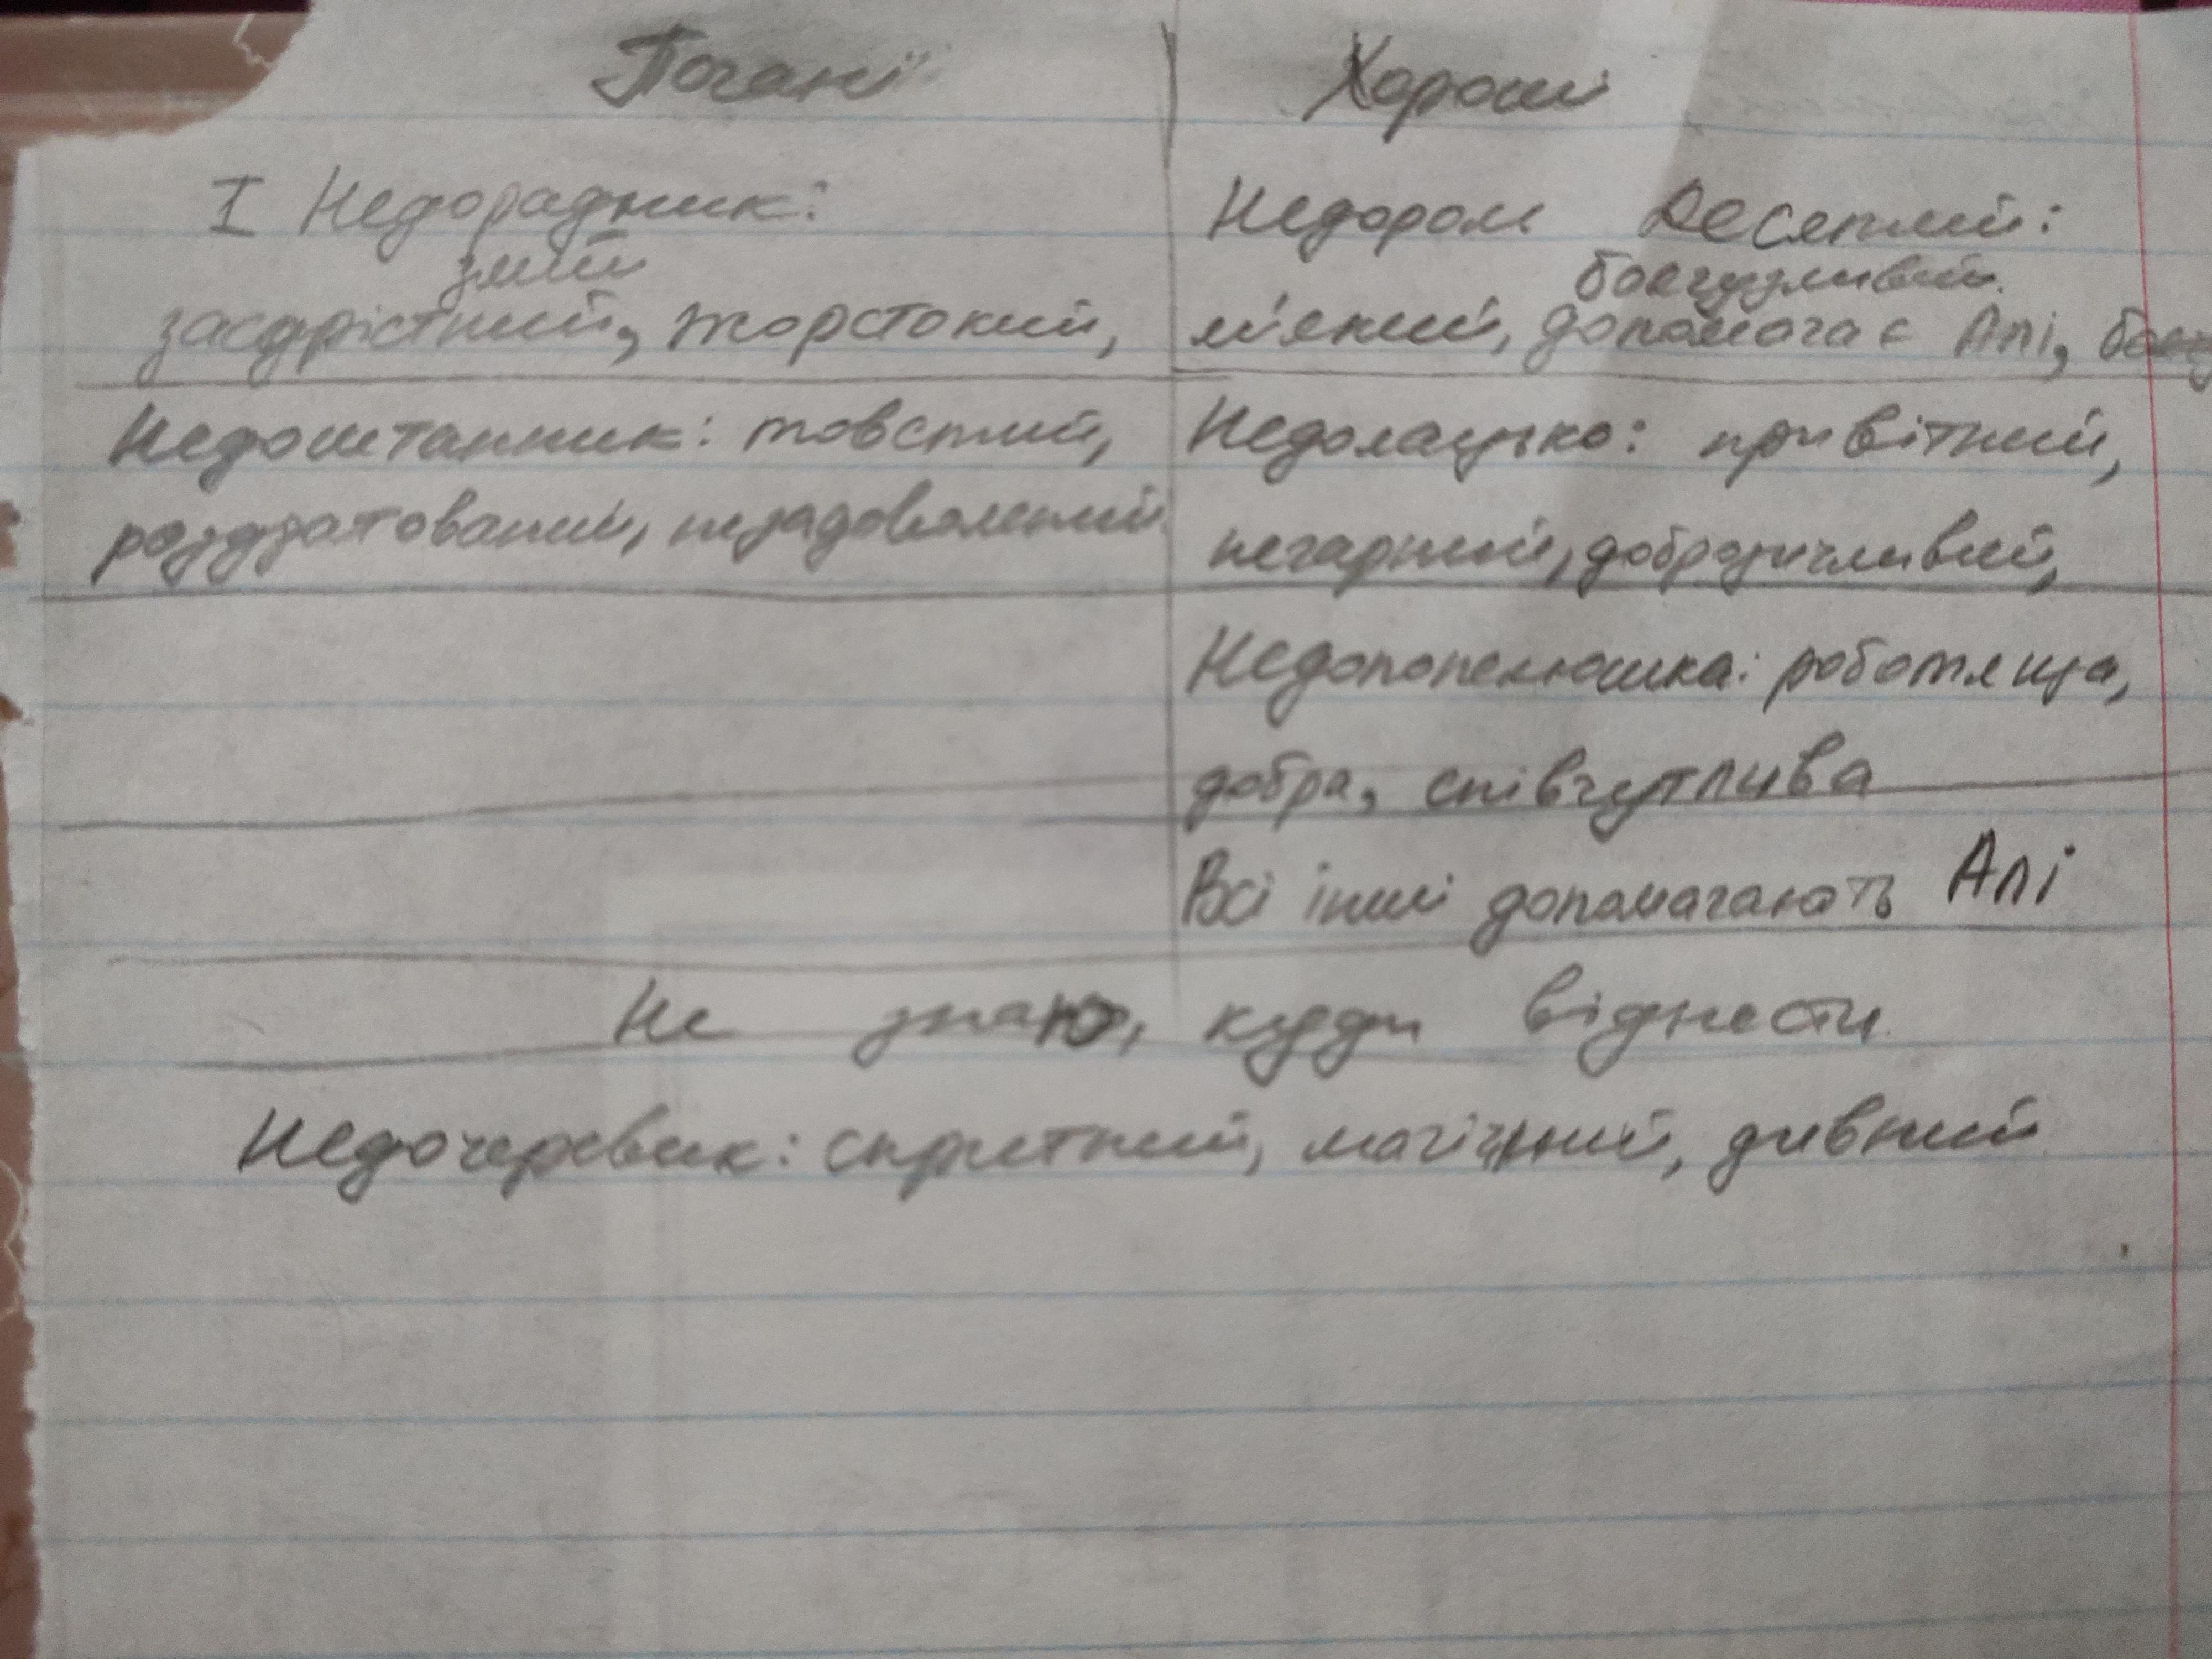 Погані
Хороші
І Недорадник:
злий
заздрістний, жорстокий,
Недороль Десятий:
боягузливий.
м'який, допомагає Алі,
Недоштанник: товстий,
роздратований, незадоволений
Недолацько: привітний,
негарний, доброзичливий,
Недопопелюшка: роботяща,
добра, співчутлива
Всі інші допомагають Алі
Не знаю, куди віднести
Недочеревик: спритний, магічний, дивний